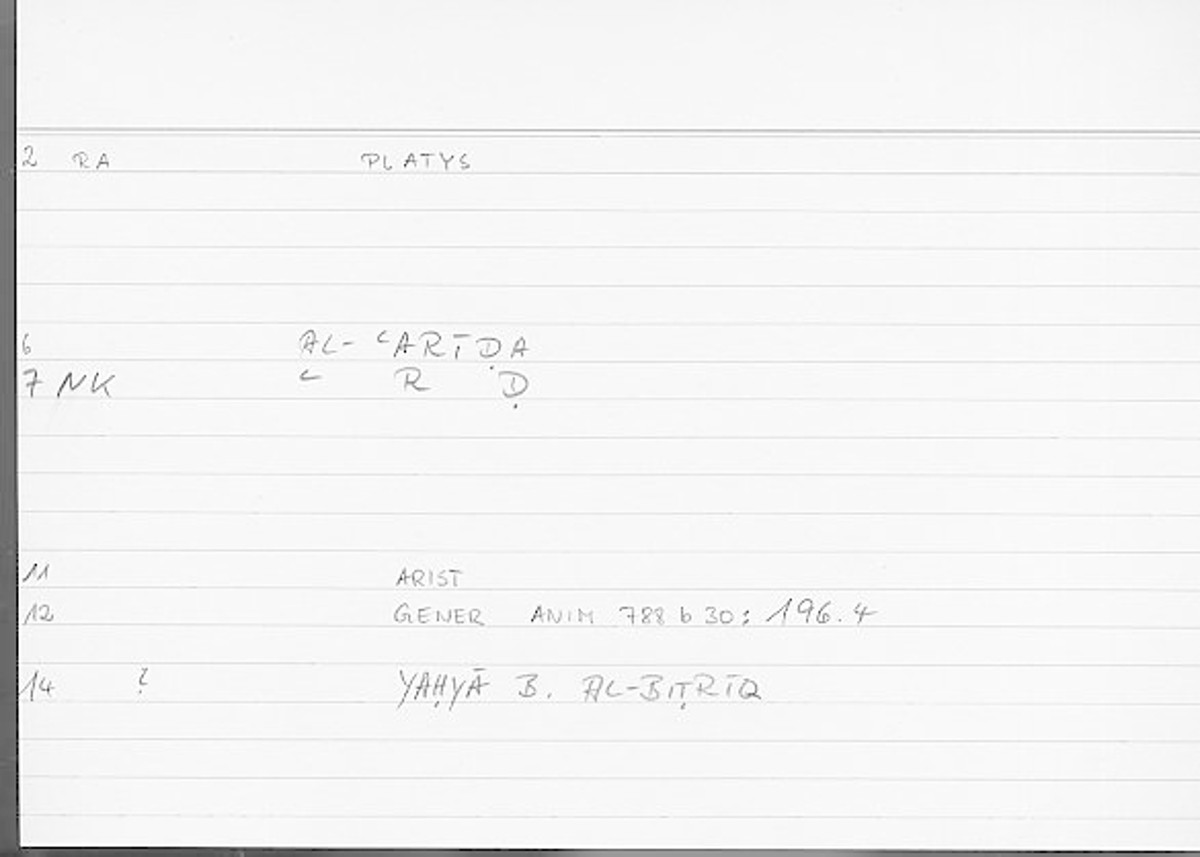 2 RA PLATYS
6 AL-ʿARĪḌA
7 NK ʿ R Ḍ
11 ARIST
12 GENER ANIM 788 b 30: 196.4
14 ? YAḤYĀ B. AL-BIṬRĪQ